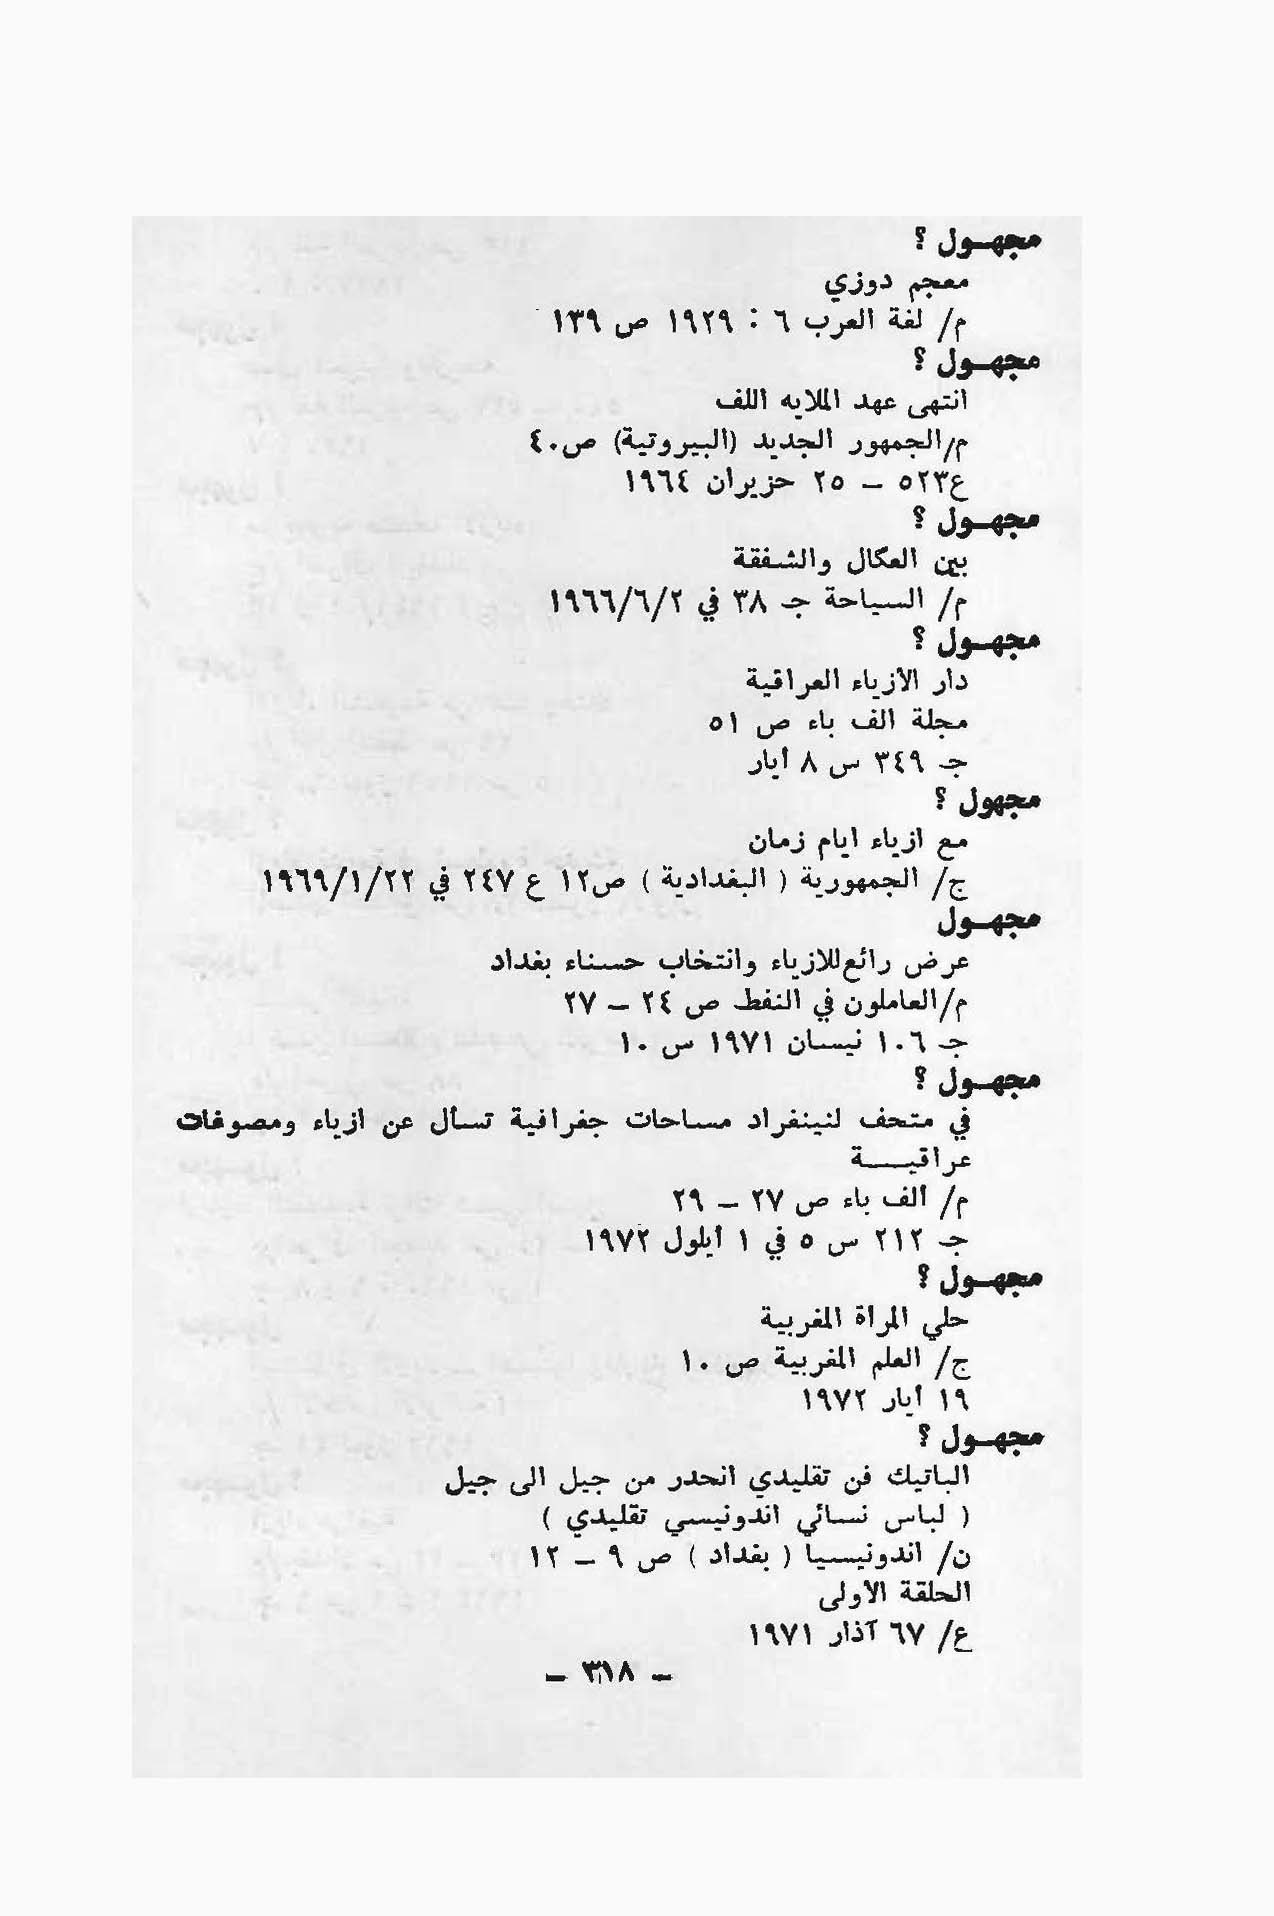 مجهـول ؟
معجم دوزي
م/ لغة العرب ٦ : ١٩٢٩ ص ١٣٩
مجهـول ؟
انتهى عهد الملايه اللف
م/الجمهور الجديد (البيروتية) ص٤٠
ع٥٢٣ – ٢٥ حزيران ١٩٦٤
مجهـول ؟
بين العكال والشفقة
م/ السياحة جـ ٣٨ في ١٩٦٦/٦/٢
مجهـول ؟
دار الأزياء العراقية
مجلة الف باء ص ٥١
جـ ٣٤٩ س ٨ أيار
مجهول ؟
مع ازياء ايام زمان
ج/ الجمهورية ( البغدادية ) ص١٢ ع ٢٤٧ في ١٩٦٩/١/٢٢
مجهـول
عرض رائع للازياء وانتخاب حسناء بغداد
م/العاملون في النفط ص ٢٤ – ٢٧
جـ ١٠٦ نيسان ١٩٧١ س ١٠
مجهـول ؟
في متحف لنينفراد مساحات جغرافية تسأل عن ازياء ومصوغات
عراقيـــة
م/ ألف باء ص ٢٧ – ٢٩
جـ ٢١٢ س ٥ في ١ أيلول ١٩٧٢
مجهـول ؟
حلي المرأة المغربية
ج/ العلم المغربية ص ١٠
١٩ أيار ١٩٧٢
مجهـول ؟
الباتيك فن تقليدي انحدر من جيل الى جيل
( لباس نسائي اندونيسي تقليدي )
ن/ اندونيسيا ( بغداد ) ص ٩ – ١٢
الحلقة الأولى
ع/ ٦٧ آذار ١٩٧١
– ٣١٨ –